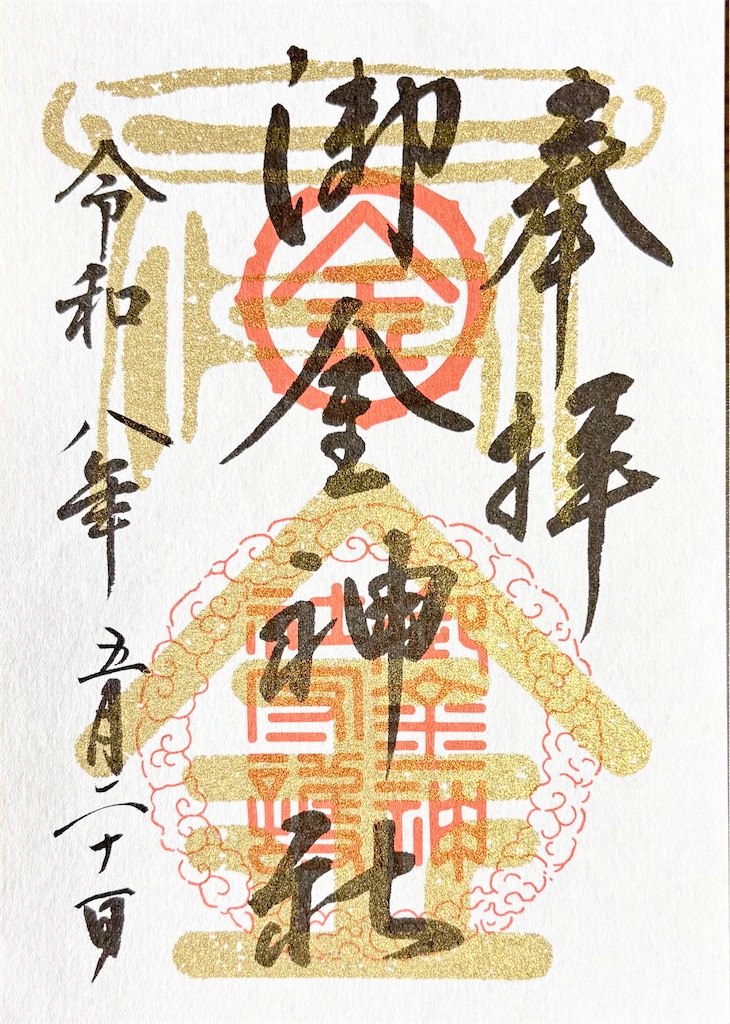 奉拝
御金神社
令和八年五月二十一日
金
御金神
社